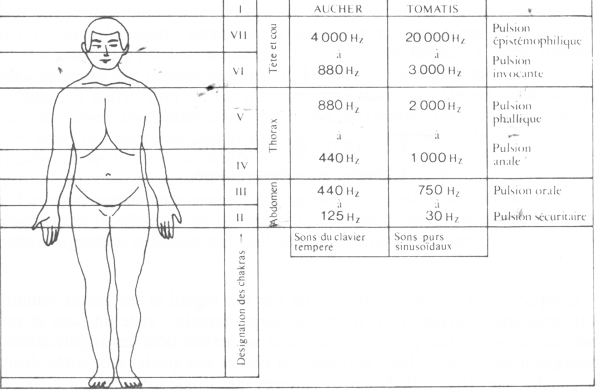 I AUCHER TOMATIS
VII Tête et cou 4 000 Hz 20 000 Hz Pulsion épistémophilique
à à
VI 880 Hz 3 000 Hz Pulsion invocante
V Thorax 880 Hz 2 000 Hz Pulsion phallique
à à
IV 440 Hz 1 000 Hz Pulsion anale
III Abdomen 440 Hz 750 Hz Pulsion orale
à à
II 125 Hz 30 Hz Pulsion sécuritaire
Sons du clavier tempere Sons purs sinusoïdaux
Designation des chakras →